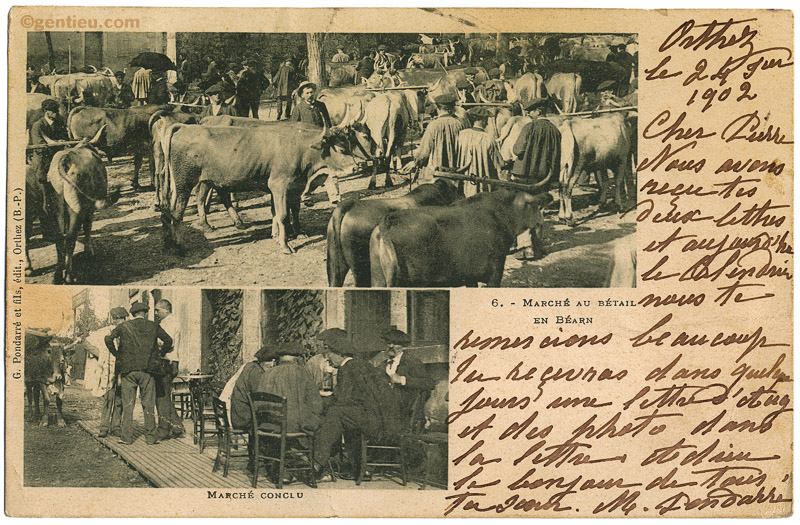 ©gentieu.com
G. Pondarré et fils, édit., Orthez (B.-P.)
6. - MARCHÉ AU BÉTAIL
EN BÉARN
MARCHÉ CONCLU
Orthez
le 24
1902
Cher Pierre
Nous avons
reçu tes
deux lettres
et aujourd'hui
le Calendrier
nous te
remercions beaucoup
Tu recevras dans quelque
jours une lettre
et des photo dans
la lettre
le bonjour de tous
ta Sœur. M. Pondarré